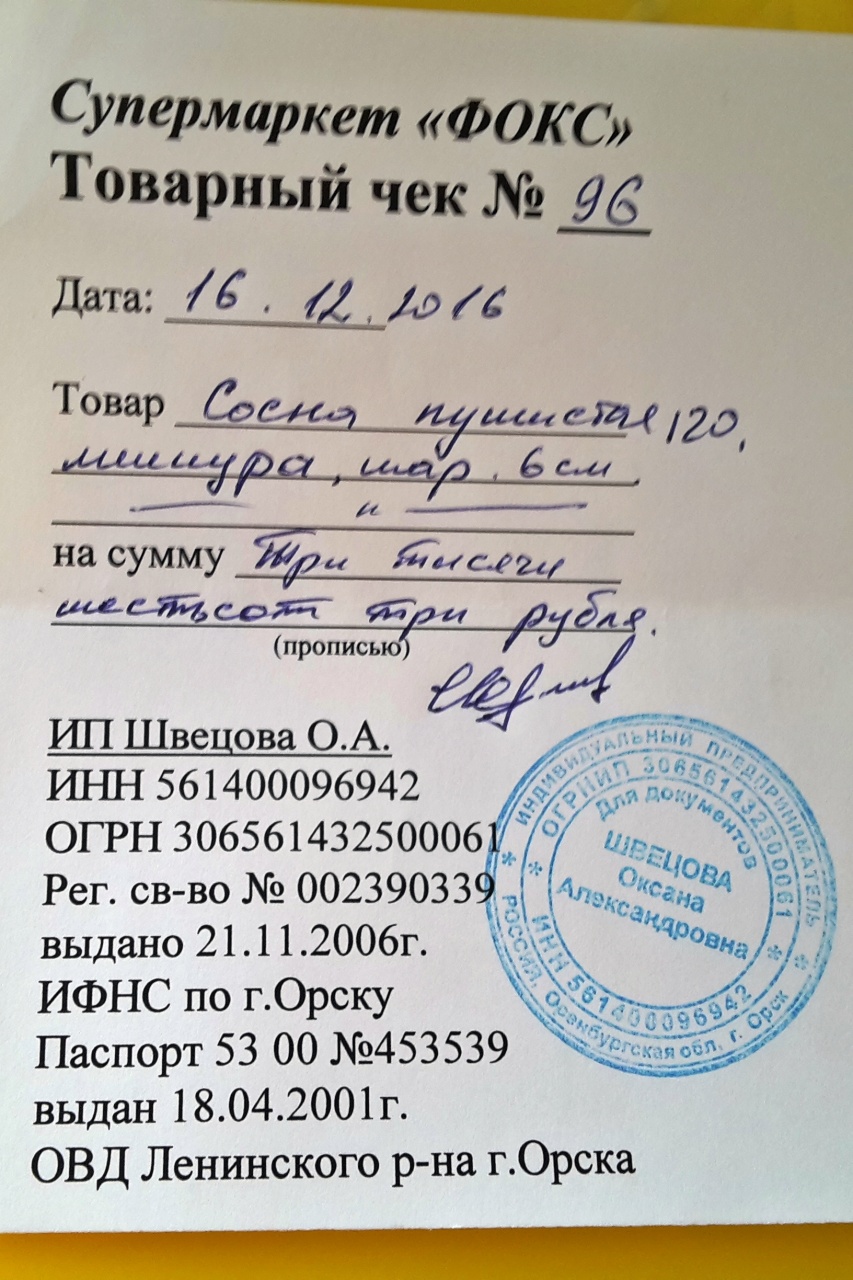 Супермаркет «ФОКС»
Товарный чек № 96
Дата: 16.12.2016
Товар Сосна пушистая 120,
мишура, шар. 6 см.
— " —
на сумму Три тысячи
шестьсот три рубля.
(прописью)
ИП Швецова О.А.
ИНН 561400096942
ОГРН 306561432500061
Рег. св-во № 002390339
выдано 21.11.2006г.
ИФНС по г.Орску
Паспорт 53 00 №453539
выдан 18.04.2001г.
ОВД Ленинского р-на г.Орска
* ИНДИВИДУАЛЬНЫЙ ПРЕДПРИНИМАТЕЛЬ *
РОССИЯ, Оренбургская обл. г. Орск
* ОГРНИП 306561432500061 *
ИНН 561400096942
Для документов
ШВЕЦОВА
Оксана
Александровна